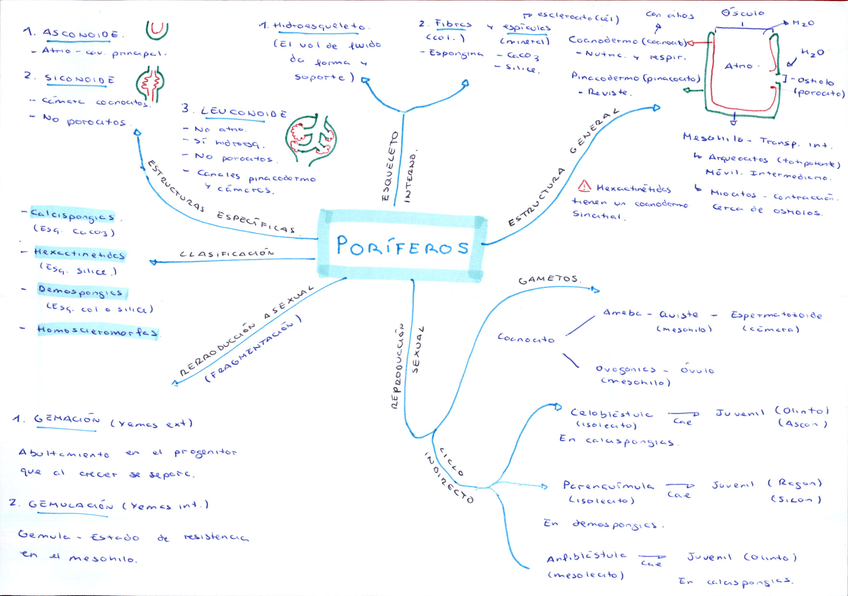 1. ASCONOIDE
- Atrio - cav. principal.
2. SICONOIDE
- Cámara coanocitos.
- No porocitos.
3. LEUCONOIDE
- No atrio.
- No porocitos.
- Canales pinacodermo
y cámaras.
ESTRUCTURAS ESPECÍFICAS.
1. Hidroesqueleto
(El vol de fluido
da forma y
soporte)
2. Fibras y espículas
(col.) (mineral)
- Espongina - CaCO3
- Sílice.
ESQUELETO
INTERNO.
esclerocito (cél)
con cilios
Coanodermo (coanocito)
- Nutric. y respir.
Pinacodermo (pinacocito)
- Reviste.
Ósculo
H2O
H2O
Atrio
Ostiolo
(porocito)
Mesohilo - Transp. int.
Arqueocitos (totipotente)
Móvil. Intermediario.
Miocitos - Contracción.
Cerca de ostiolos.
ESTRUCTURA GENERAL
Hexactinélidas
tienen un coanodermo
sincitial.
PORÍFEROS
CLASIFICACIÓN
- Calcispongias
(Esq. CaCO3)
- Hexactinélidas
(Esq. sílice)
- Demospongias
(Esq. col o sílice)
- Homoscleromorfas
REPRODUCCIÓN ASEXUAL
(FRAGMENTACIÓN)
1. GEMACIÓN (Yemas ext)
Abultamiento en el progenitor
que al crecer se separa.
2. GEMULACIÓN (Yemas int.)
Gemula - Estado de resistencia
en el mesohilo.
REPRODUCCIÓN
SEXUAL
GAMETOS.
Coanocito
Ameba - Quiste - Espermatozoide
(mesohilo) (cámara)
Ovogonias - Óvulo
(mesohilo)
CICLO
INDIRECTO
Celoblástula Cae Juvenil (Olinto)
(isolecito) (Ascon)
En calcispongias.
Parenquímula Cae Juvenil (Ragon)
(isolecito) (Sicon)
En demospongias.
Anfiblástula Cae Juvenil (Olinto)
(mesolecito) En calcispongias.